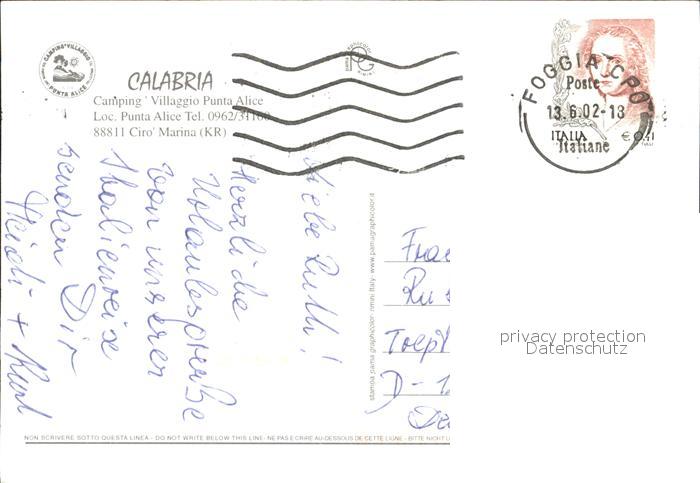 CAMPING VILLAGGIO
PUNTA ALICE
CALABRIA
Camping ' Villaggio Punta Alice
Loc. Punta Alice Tel. 0962/31160
88811 Ciro' Marina (KR)
FOGGIA CPO
Poste
13.6.02-18
ITALIA
€ 0,41
Italiane
Liebe Ruth!
Herzliche
Urlaubsgrüße
von unserer
Italienreise
senden Dir
Heidi + Kurt
stampa pama graphicolor rimini Italy- www.pamagraphicolor.it
Frau
D-1
privacy protection
Datenschutz
NON SCRIVERE SOTTO QUESTA LINEA - DO NOT WRITE BELOW THIS LINE- NE PAS ECRIRE AU-DESSOUS DE CETTE LIGNE - BITTE NICHT